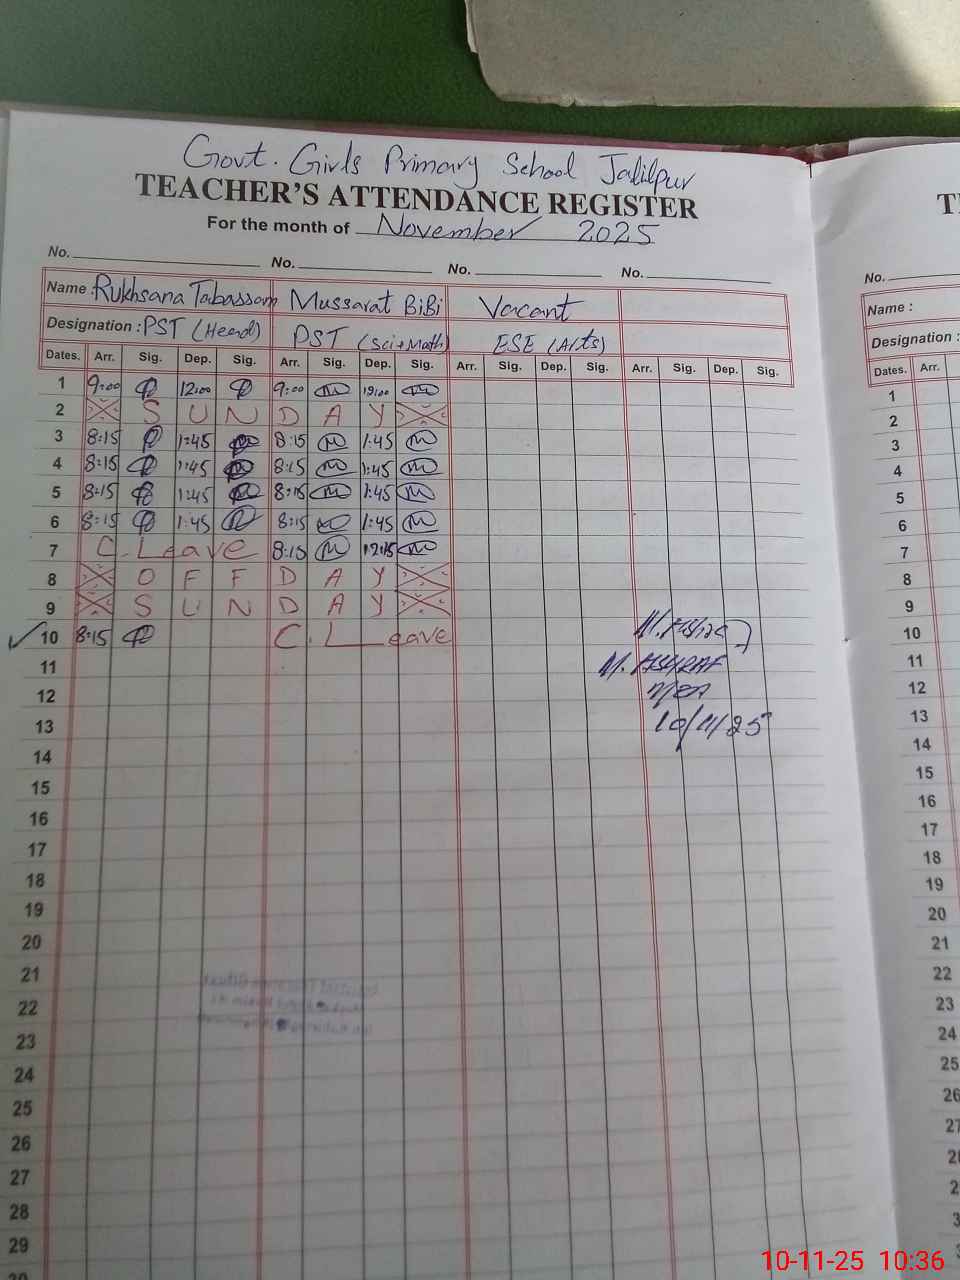 Govt. Girls Primary School Jalilpur
TEACHER'S ATTENDANCE REGISTER
For the month of November 2025
No. No. No. No.
Name : Rukhsana Tabassam Mussarat BiBi Vacant
Designation : PST (Head) PST (Sci+Math) ESE (Arts)
Dates. Arr. Sig. Dep. Sig. Arr. Sig. Dep. Sig. Arr. Sig. Dep. Sig. Arr. Sig. Dep. Sig.
1 9:00 12:00 9:00
2 S U N D A Y
3 8:15 1:45 8:15 1:45
4 8:15 1:45 8:15 1:45
5 8:15 1:45 8:15 1:45
6 8:15 1:45 8:15 1:45
7 C. Leave 8:15
8 O F F D A Y
9 S U N D A Y
10 8:15 C. Leave
11
12
13 10/11/25
14
15
16
17
18
19
20
21
22
23
24
25
26
27
28
29
No.
Name :
Designation :
Dates. Arr.
1
2
3
4
5
6
7
8
9
10
11
12
13
14
15
16
17
18
19
20
21
22
23
24
25
26
10-11-25 10:36